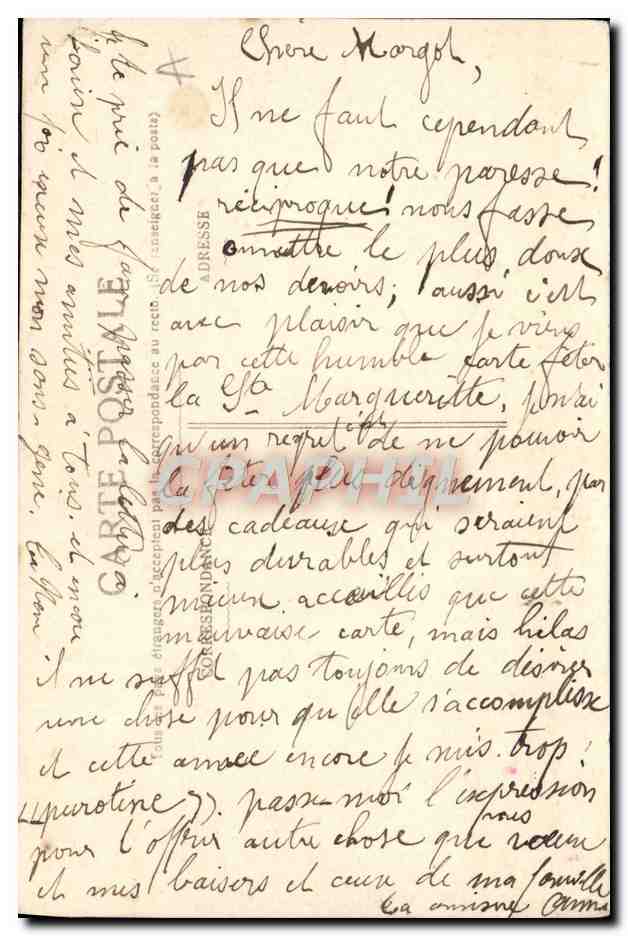 Chère Margot,
Il ne faut cependant
pas que notre paresse!
réciproque! nous fasse
omettre le plus doux
de nos devoirs; aussi c'est
avec plaisir que je viens
par cette humble carte fêter
la Ste Marguerite, je n'ai
qu'un regret de ne pouvoir
la fêter plus dignement, par
des cadeaux qui seraient
plus durables et surtout
mieux accueillis que cette
mauvaise carte, mais hélas
il ne suffit pas toujours de désirer
une chose pour qu'elle s'accomplisse
et cette année encore je suis trop
"purotine". passe-moi l'expression
pour t'offrir autre chose que vœux
et mes baisers et ceux de ma famille
ta
je te prie de faire passer la lettre à
et mes amitiés à tous. et encore
un
CARTE POSTALE
Tous les pays étrangers n'acceptent pas la correspondance au recto. (Se renseigner à la poste)
CORRESPONDANCE
ADRESSE
CPAPHIL